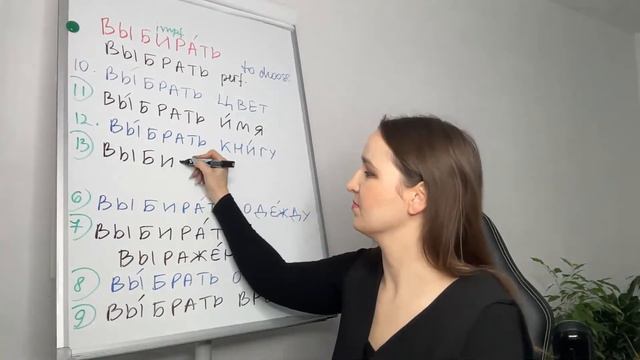 impf
ВЫБИРА́ТЬ
ВЫ́БРАТЬ perf. to choose
10. ВЫ́БРАТЬ ЦВЕТ
11 ВЫ́БРАТЬ И́МЯ
12. ВЫ́БРАТЬ КНИ́ГУ
13 ВЫБИ
6 ВЫБИРА́ ОДЕ́ЖДУ
7 ВЫБИРА́Т
ВЫРАЖЕ́Н
8 ВЫ́БРАТЬ О
9 ВЫ́БРАТЬ ВР